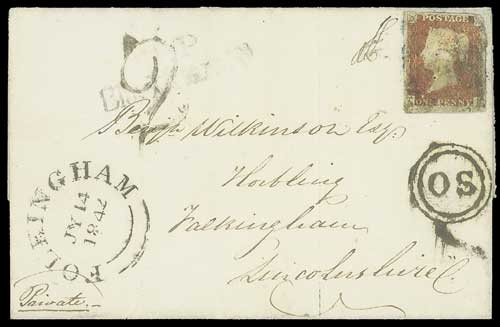 POSTAGE
ONE PENNY
2
Benjn Wilkinson Esqr
Horbling
Falkingham
Lincolnshire
FOLKINGHAM
JY 14
1842
OS
Private